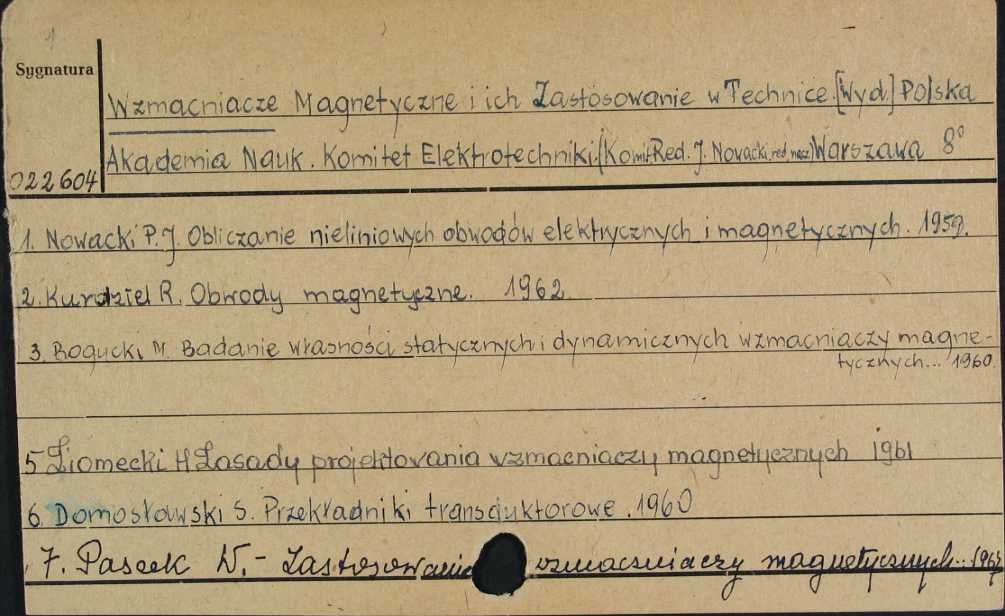 1
Sygnatura
Wzmacniacze Magnetyczne i ich Zastosowanie w Technice. [Wyd.] Polska
Akademia Nauk. Komitet Elektrotechniki. (Komit. Red. J. Nowacki, red. nacz.) Warszawa 8°
022604
1. Nowacki P. J. Obliczanie nieliniowych obwodów elektrycznych i magnetycznych. 1959.
2. Kurdziel R. Obwody magnetyczne. 1962.
3. Bogucki M. Badanie własności statycznych i dynamicznych wzmacniaczy magne-
tycznych... 1960.
5 Ziomecki H Zasady projektowania wzmacniaczy magnetycznych 1961
6. Domosławski S. Przekładniki transduktorowe. 1960
7. Paszek W. - Zastosowanie wzmacniaczy magnetycznych...